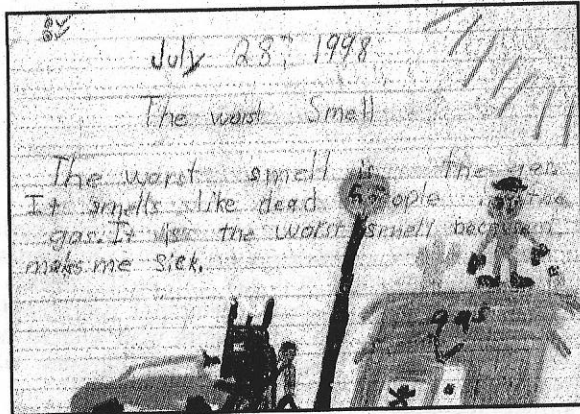 By
July 28, 1998
The worst Smell
The worst smell is the gas.
It smells like dead people
gas. It is the worst smell because
makes me sick.
gas